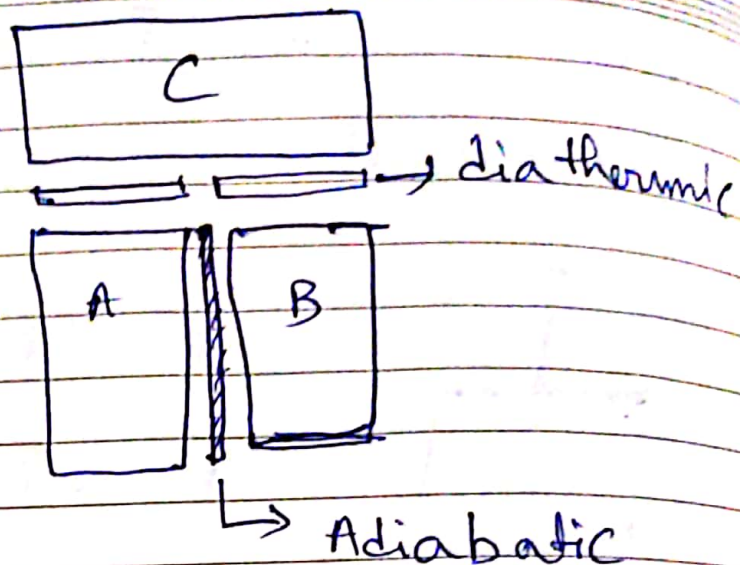 C
diathermic
A
B
Adiabatic